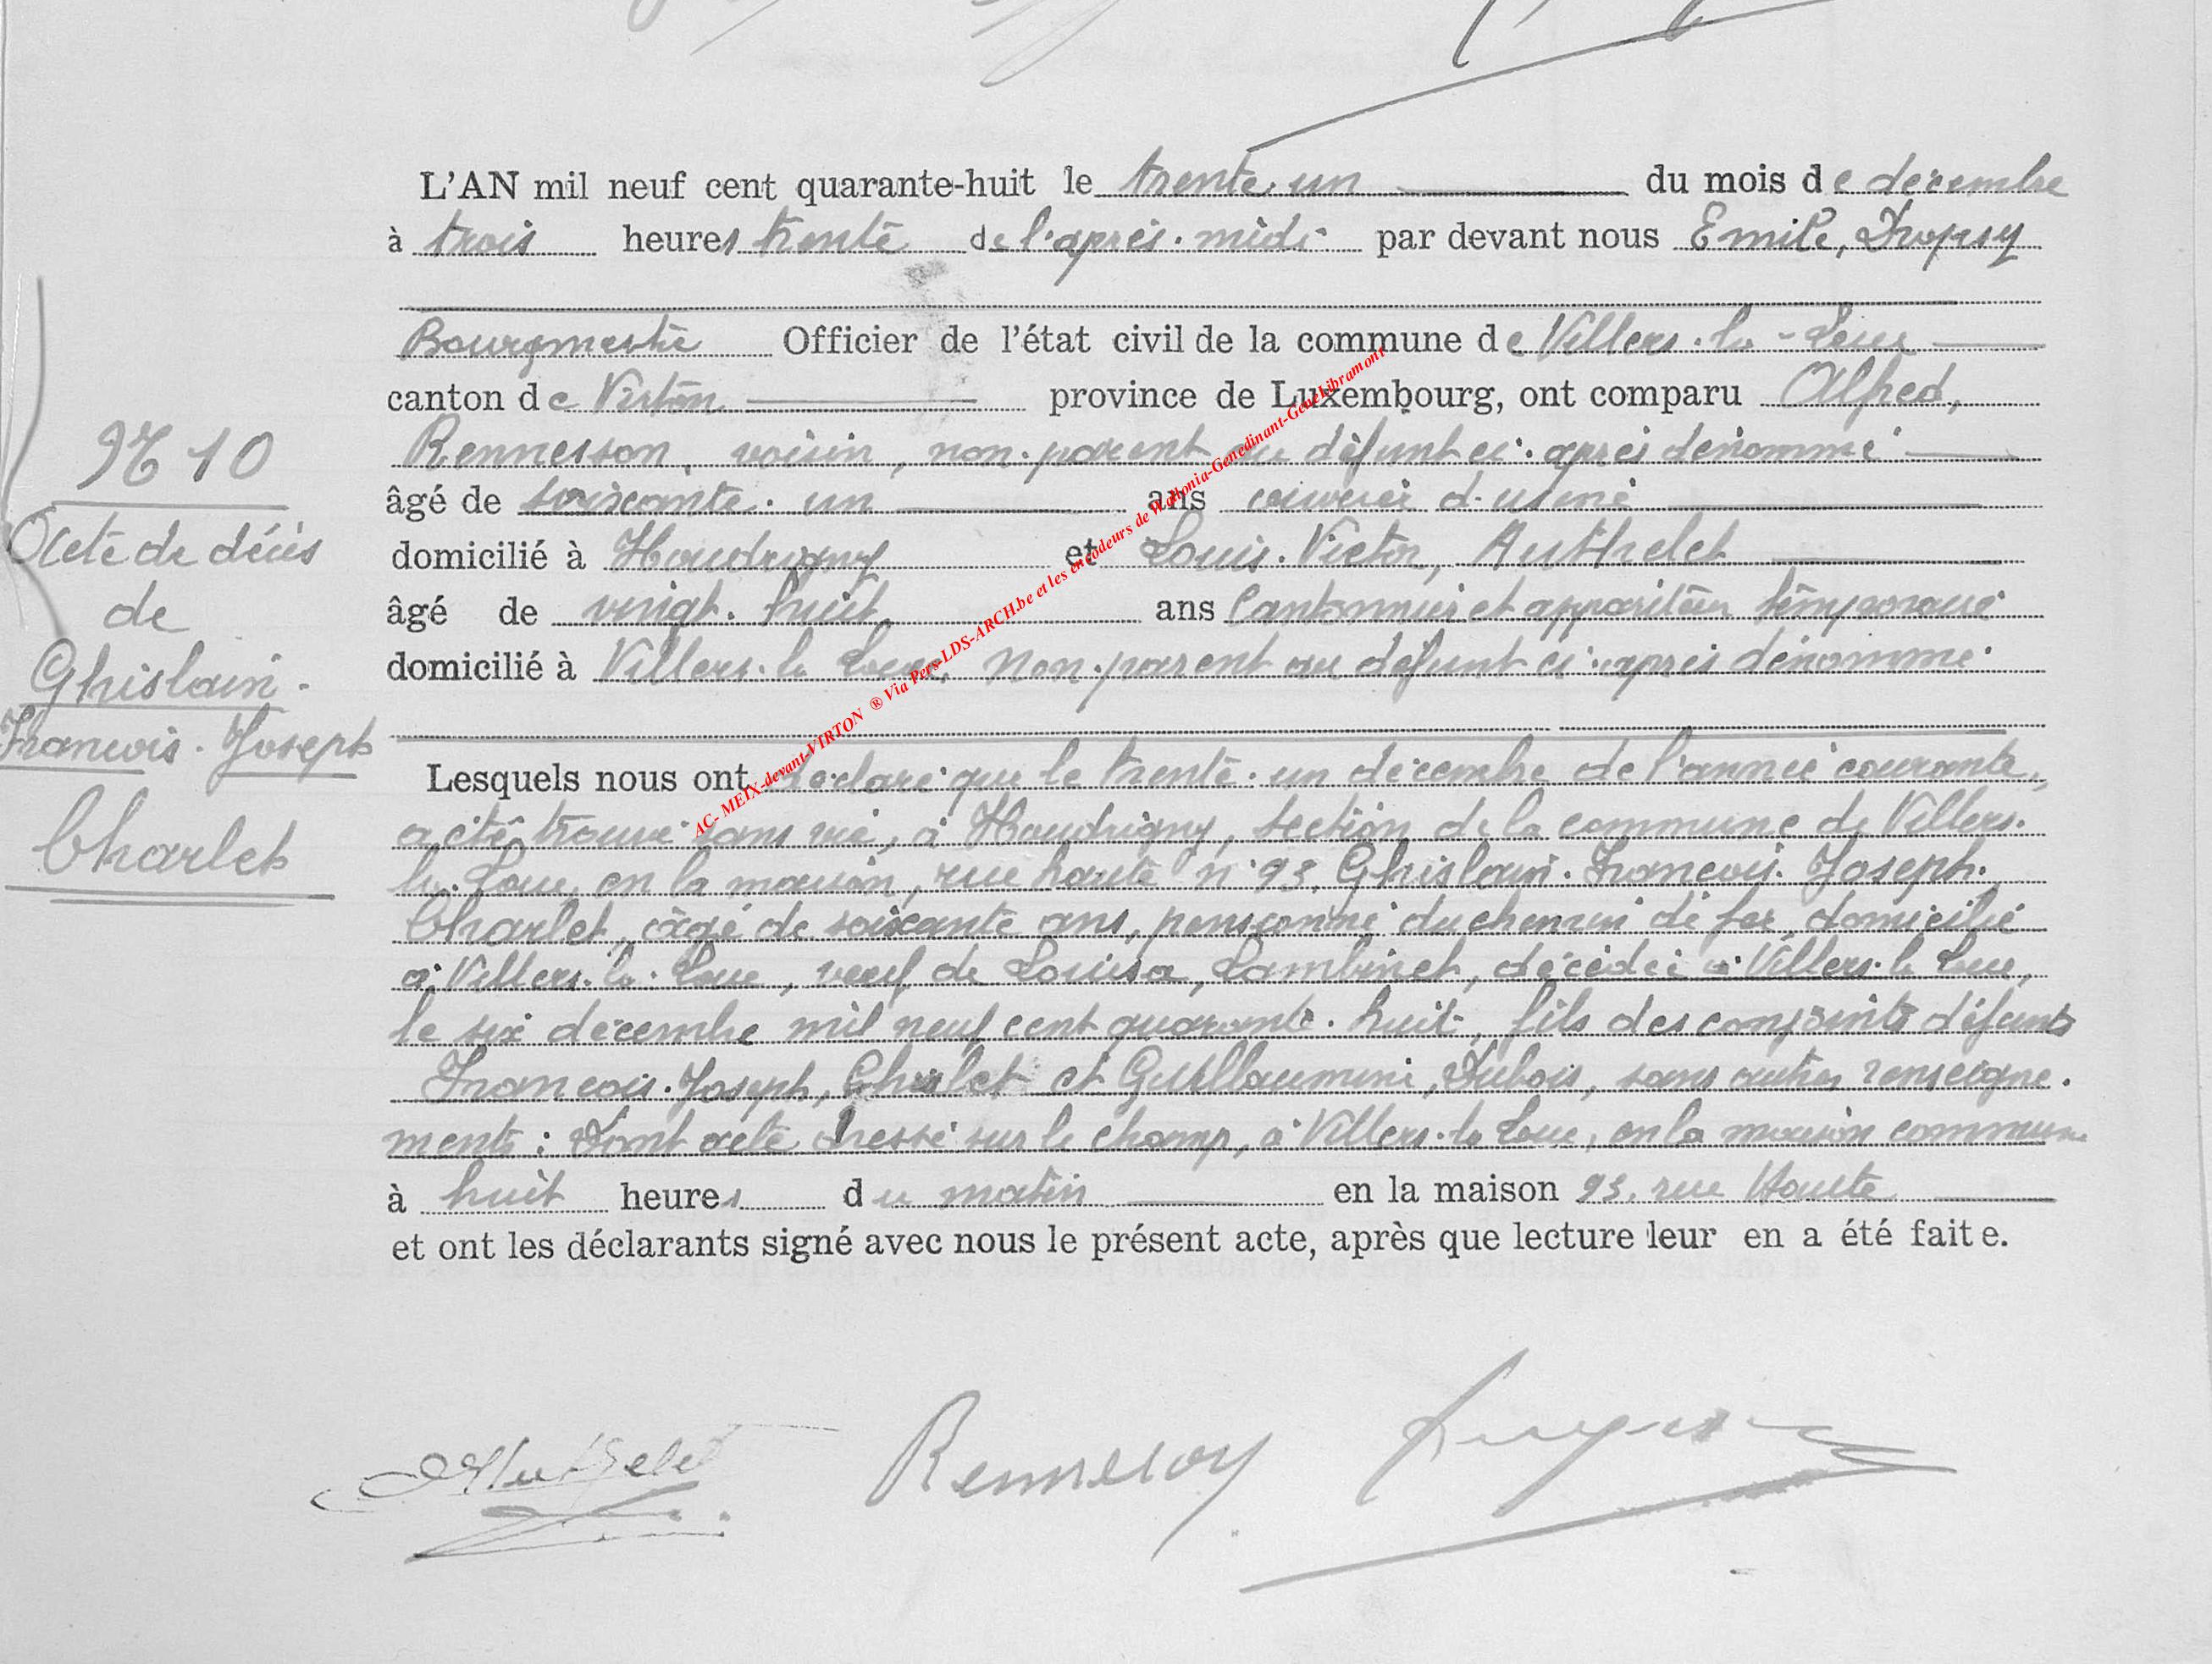 L'AN mil neuf cent quarante-huit le trente-un du mois de décembre
à trois heures trente de l'après-midi par devant nous Emile, Dropsy
Bourgmestre Officier de l'état civil de la commune de Villers-la-Loue
canton de Virton province de Luxembourg, ont comparu Alfred,
Rennesson, voisin, non-parent au défunt ci-après dénommé
âgé de soixante-un ans ouvrier d'usine
domicilié à Houdrigny et Louis-Victor, Authelet
âgé de vingt-huit ans Cantonnier et appariteur temporaire
domicilié à Villers-la-Loue, non-parent au défunt ci-après dénommé
Lesquels nous ont déclaré que le trente-un décembre de l'année courante,
a été trouvé sans vie, à Houdrigny, section de la commune de Villers-
la-Loue, en la maison, rue haute n° 93, Ghislain-François-Joseph-
Charlet, âgé de soixante ans, pensionné du chemin de fer, domicilié
à Villers-la-Loue, veuf de Louisa, Lambinet, décédée à Villers-la-Loue,
le six décembre mil neuf cent quarante-huit, fils des conjoints défunts
François-Joseph, Charlet et Guillaumine, Dubois, sans autres renseigne-
ments : Dont acte dressé sur le champ, à Villers-la-Loue, en la maison commune
à huit heures du matin en la maison 93, rue Haute
et ont les déclarants signé avec nous le présent acte, après que lecture leur en a été faite.
Authelet Rennesson Dropsy
N° 10
Acte de décès
de
Ghislain-
François-Joseph
Charlet
AC- MEIX-devant-VIRTON ® Via Pers-LDS-ARCH.be et les encodeurs de Wallonia-Genedinant-GeneLibramont